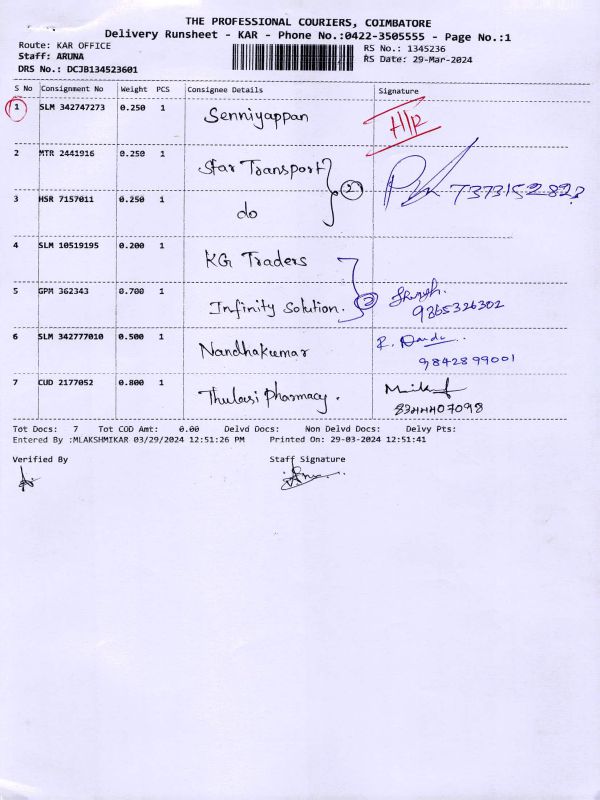 THE PROFESSIONAL COURIERS, COIMBATORE
Delivery Runsheet - KAR - Phone No.:0422-3505555 - Page No.:1
Route: KAR OFFICE RS No.: 1345236
Staff: ARUNA RS Date: 29-Mar-2024
DRS No.: DCJB134523601
S No Consignment No Weight PCS Consignee Details Signature
1 SLM 342747273 0.250 1 Senniyappan
2 MTR 2441916 0.250 1 Star Transport
2 7373152823
3 HSR 7157011 0.250 1 do
4 SLM 10519195 0.200 1 KG Traders
5 GPM 362343 0.700 1 Infinity Solution. 2 9365326302
6 SLM 342777010 0.500 1 Nandhakumar
9842899001
7 CUD 2177052 0.800 1 Thulasi Pharmacy.
8344407098
Tot Docs: 7 Tot COD Amt: 0.00 Delvd Docs: Non Delvd Docs: Delvy Pts:
Entered By :MLAKSHMIKAR 03/29/2024 12:51:26 PM Printed On: 29-03-2024 12:51:41
Verified By Staff Signature